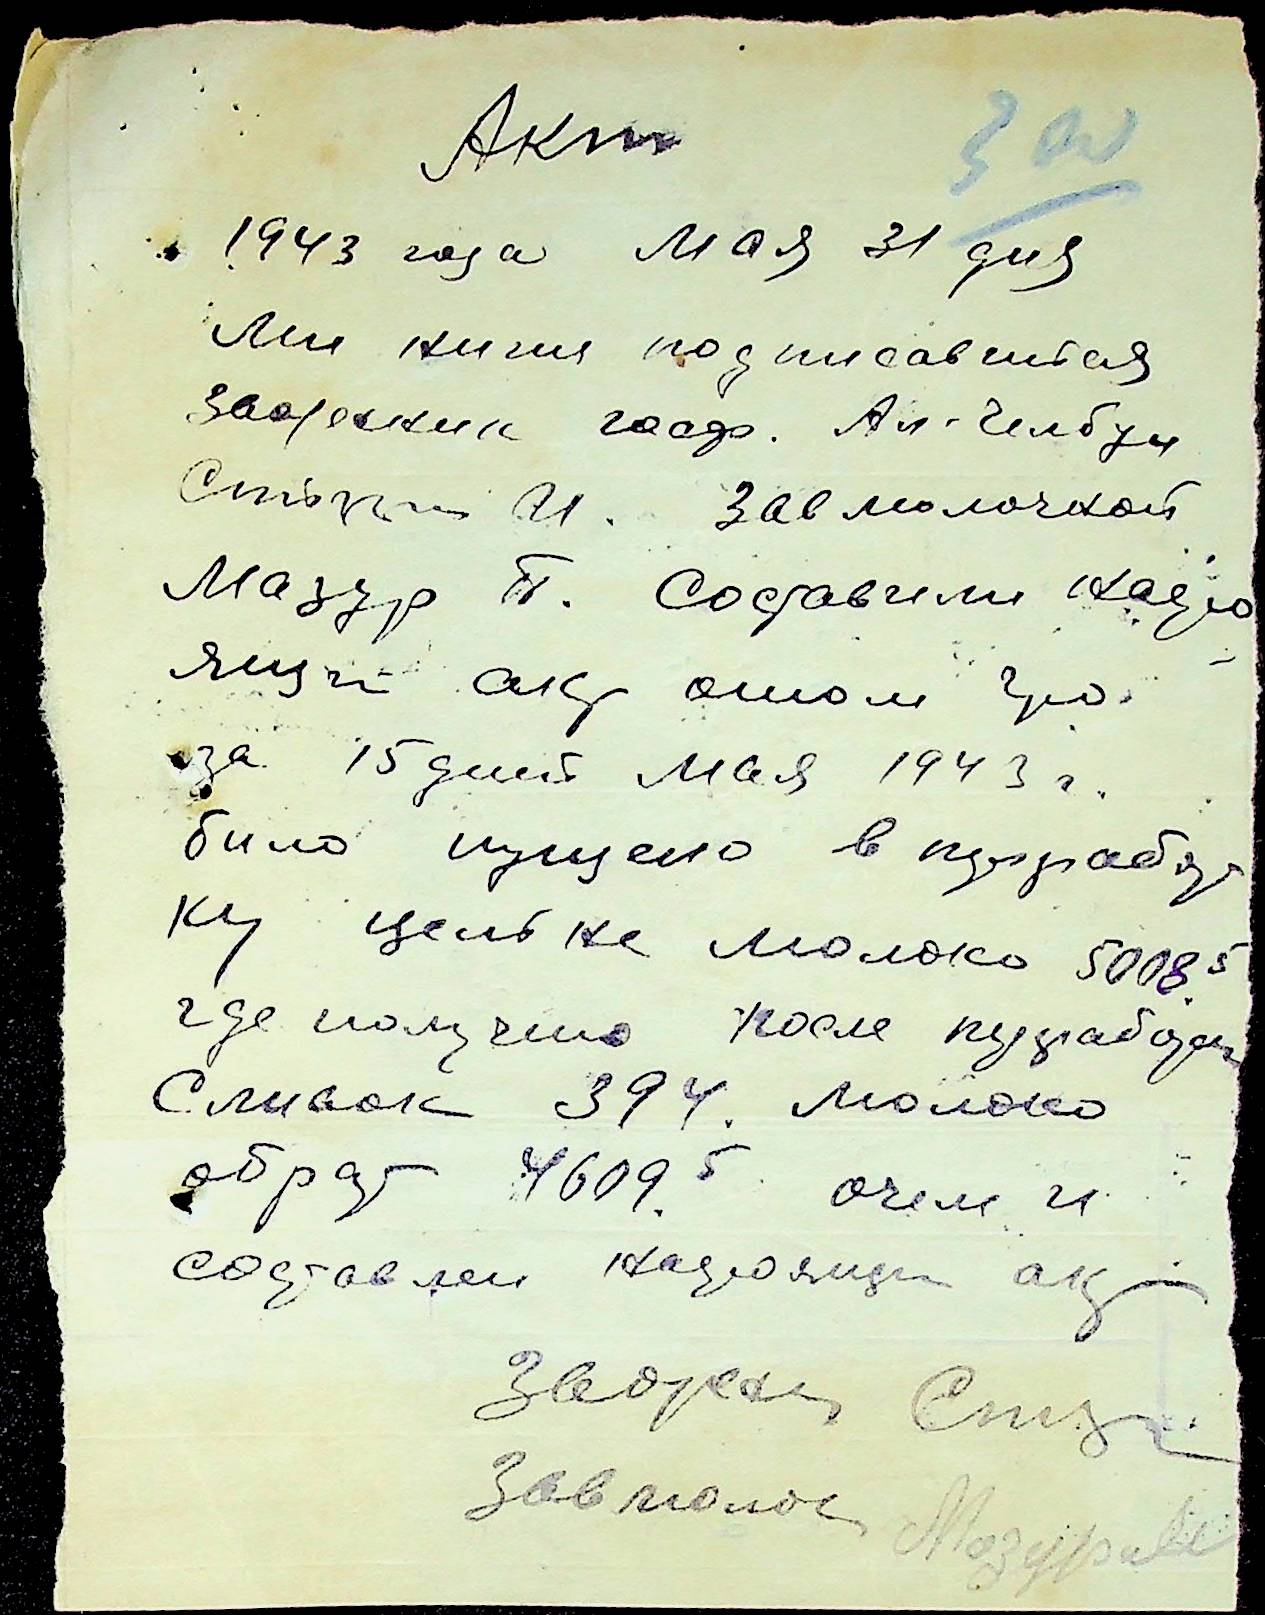 Акт
1943 года мая 31 дня
Ми ниже подписавшиеся
госф. Ал-Челбуи
И. Завмолочной
Мазур П. Составили насто
ящи акт отом что
за 15 дней мая 1943 г.
било пущено в пурработ
ку цельне молоко 5003.5
где получено после пурработки
Сливок 394. молоко
обрат 4609.5 очем и
составлен настоящи акт
Завмолоч